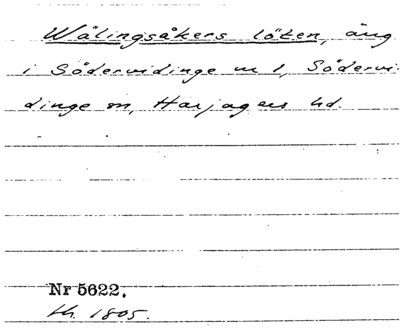 Wälingsåkers löten, äng
i Södervidinge nr 1, Södervi-
dinge sn, Harjagers hd.
Nr 5622.
th. 1805.